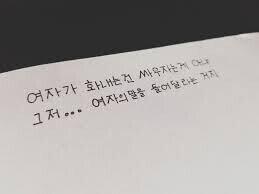 여자가 화내는건 싸우자는게 아냐
그저... 여자의말을 들어달라는 거지